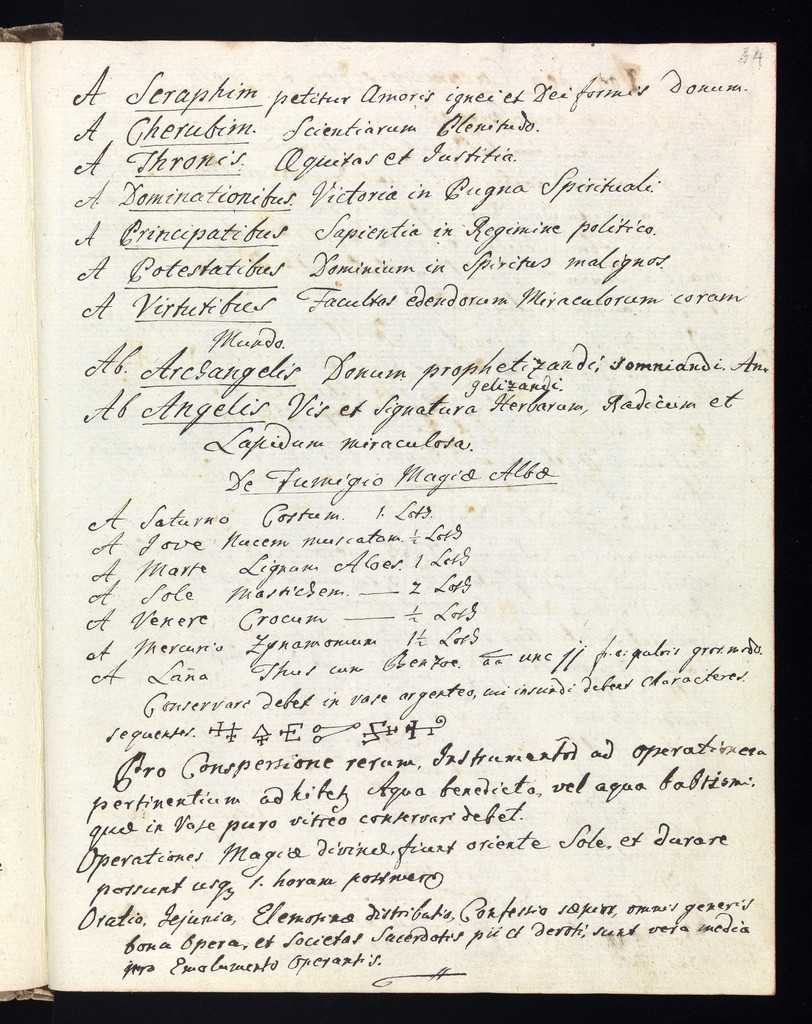 34
A Seraphim petitur Amoris ignei et Dei formis Donum.
A Cherubim. Scientiarum Plenitudo.
A Thronis. Æquitas et Justitia.
A Dominationibus. Victoria in Pugna Spirituali.
A Principatibus Sapientia in Regimine politico.
A Potestatibus Dominium in Spiritus malignos.
A Virtutibus Facultas edendorum Miraculorum coram
Mundo.
Ab. Archangelis Donum prophetizandi, somniandi. An-
gelizandi.
Ab Angelis Vis et Signatura Herbarum, Radicum et
Lapidum miraculosa.
De Fumigio Magiæ Albæ
A Saturno Costum. 1. Loth.
A Jove Nucem muscatam. ½ Loth
A Marte Lignum Aloes. 1 Loth
A Sole Mastichem. — 2 Loth
A Venere Crocum — ½ Loth
A Mercurio Zynamomum 1½ Loth
A Luna Thus cum Benzoe. aa unc jj f. a. pulvis gros. modo.
Conservare debet in vase argenteo, cui insundi debent characteres.
sequentes.
Pro Conspersione rerum, Instrumentorum ad operationem
pertinentium adhibetur Aqua benedicta, vel aqua babtismi,
quæ in Vase puro vitreo conservari debet.
Operationes Magiæ divinæ, fiunt oriente Sole, et durare
possunt usq 1. horam
Oratio, Jejunia, Elemosinæ distributio, Confessio sæpior, omnis generis
bona Opera, et Societas Sacerdotis pii et devoti, sunt vera media
pro Emolumento Operantis.